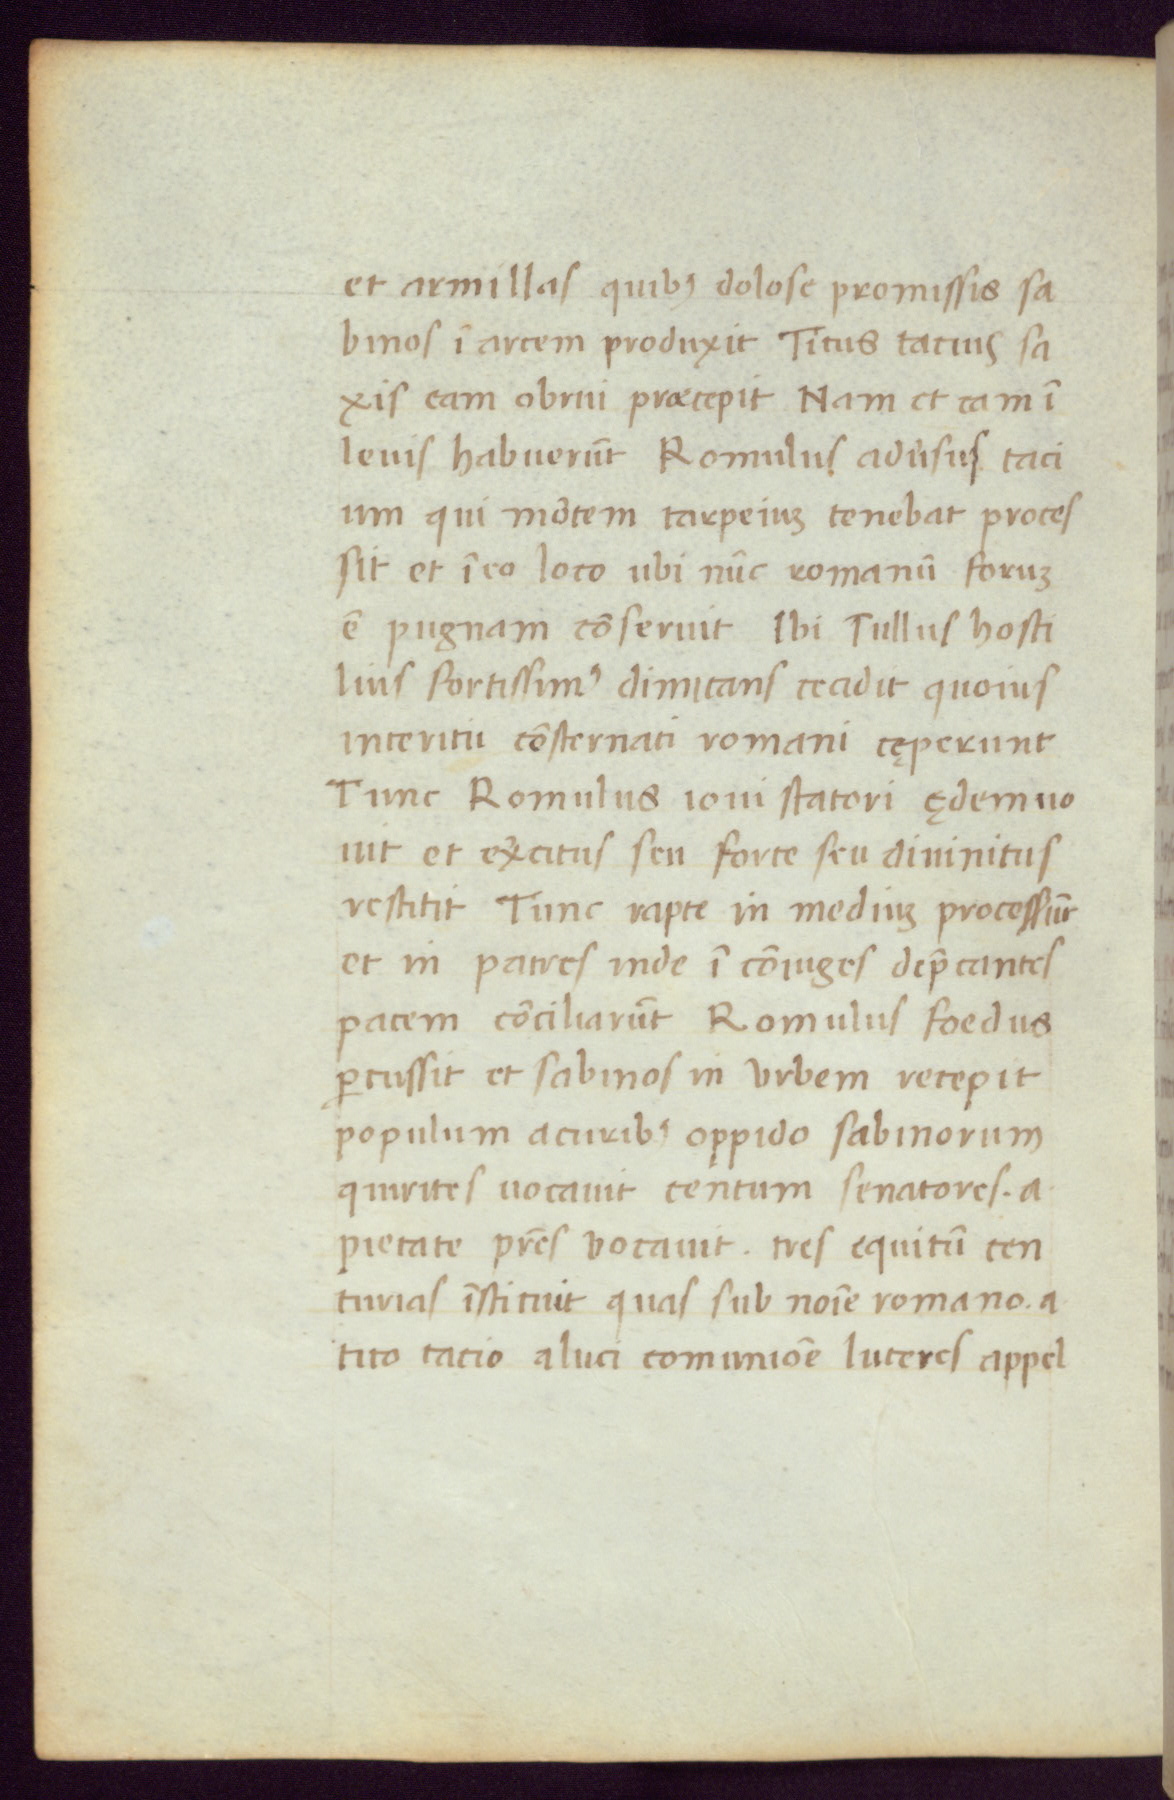 et armillas quibꝫ dolose promissis sa
binos ī arcem produxit Titus tacius sa
xis eam obrui præcepit Nam et eam ī
leuis habuerūt Romulus adūsus taci
um qui mōtem tarpeiuꝫ tenebat proces
sit et ī eo loco ubi nūc romanū foruꝫ
ē pugnam cōseruit Ibi Tullus hosti
lius fortissimꝰ dimicans cecidit quoius
interitu cōsternati romani cęperunt
Tunc Romulus ioui statori ędem uo
uit et exc̄itus seu forte seu diuinitus
restitit Tunc rapte in mediuꝫ processūt
et in patres inde ī cōiuges dep̄cantes
pacem cōciliarūt Romulus foedus
ꝑcussit et sabinos in vrbem recepit
populum a curibꝫ oppido sabinorum
quirites uocauit centum senatores. a
pietate pr̄es vocauit. tres equitū cen
turias īstituit quas sub noīe romano. a
tito tacio a luci comuniōe luceres appel